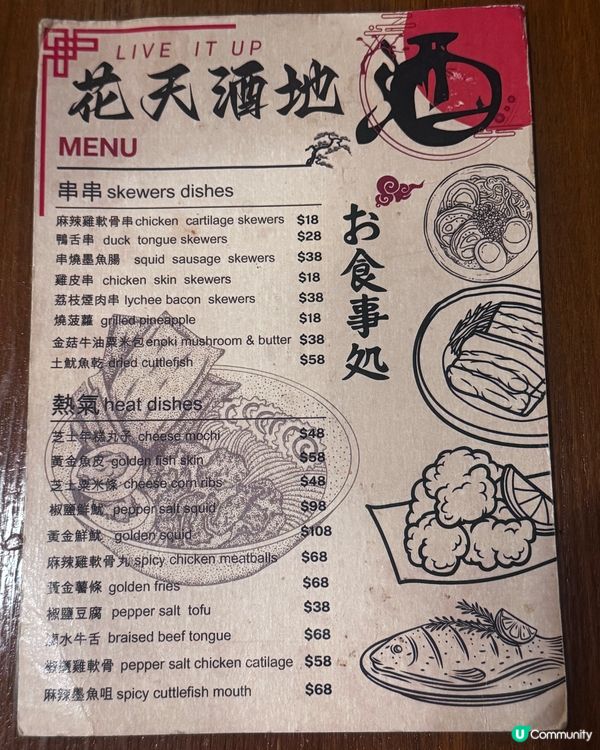 LIVE IT UP
花天酒地
酒
MENU
お食事処
串串 skewers dishes
麻辣雞軟骨串 chicken cartilage skewers $18
鴨舌串 duck tongue skewers $28
串燒墨魚腸 squid sausage skewers $38
雞皮串 chicken skin skewers $18
荔枝煙肉串 lychee bacon skewers $38
燒菠蘿 grilled pineapple $18
金菇牛油粟米包 enoki mushroom & butter $38
土魷魚乾 dried cuttlefish $58
熱氣 heat dishes
芝士年糕丸子 cheese mochi $48
黃金魚皮 golden fish skin $58
芝士粟米條 cheese corn ribs $48
椒鹽鮮魷 pepper salt squid $98
黃金鮮魷 golden squid $108
麻辣雞軟骨丸 spicy chicken meatballs $68
黃金薯條 golden fries $68
椒鹽豆腐 pepper salt tofu $38
滷水牛舌 braised beef tongue $68
椒鹽雞軟骨 pepper salt chicken catilage $58
麻辣墨魚咀 spicy cuttlefish mouth $68
U Community